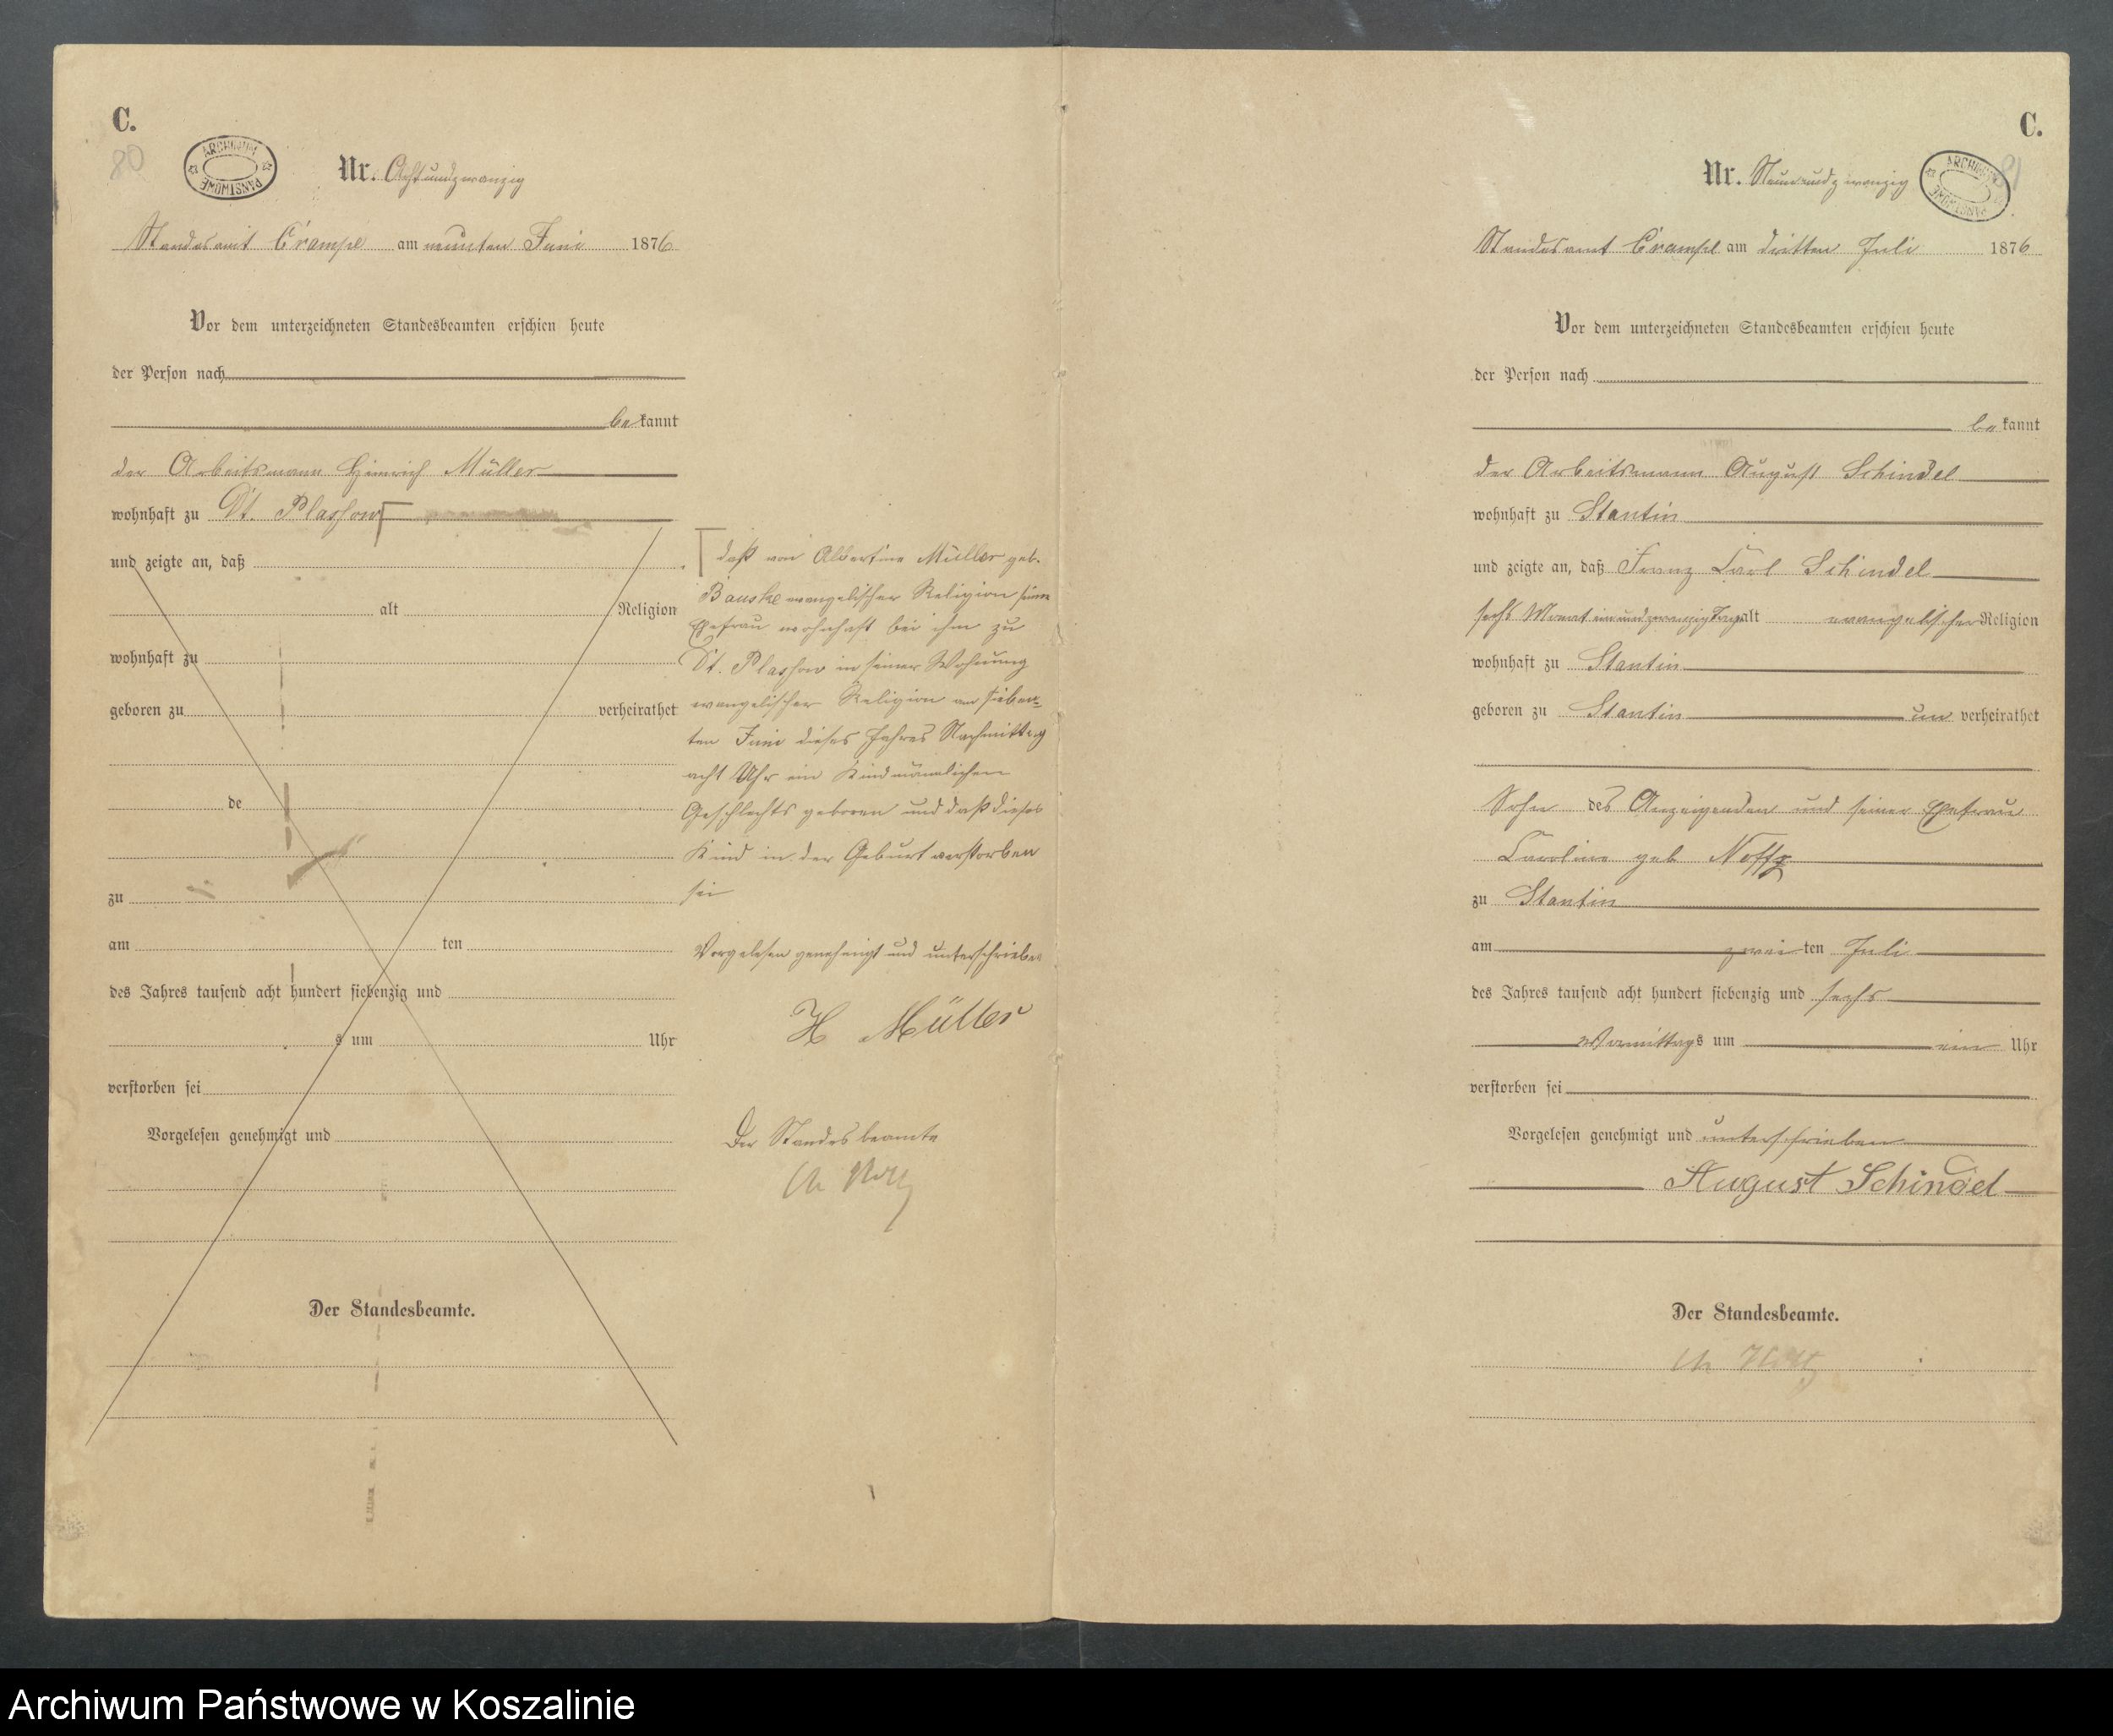 C.
80
ARCHIWUM PAŃSTWOWE
Nr. Achtundzwanzig
Standesamt Crampe am neunten Juni 1876
Vor dem unterzeichneten Standesbeamten erschien heute
der Person nach
bekannt
der Arbeitsmann Heinrich Müller
wohnhaft zu Dt. Plassow
und zeigte an, daß
alt Religion
wohnhaft zu
geboren zu verheirathet
de
zu
am ten
des Jahres tausend acht hundert siebenzig und
s um Uhr
verstorben sei
Vorgelesen genehmigt und
Der Standesbeamte.
daß von Albertine Müller geb.
Bauske evangelischer Religion seine
Ehefrau wohnhaft bei ihm zu
Dt. Plassow in seiner Wohnung
evangelischer Religion am sieben-
ten Juni dieses Jahres Nachmittag
acht Uhr ein Kind männlichen
Geschlechts geboren und daß dieses
Kind in der Geburt verstorben
sei
Vorgelesen genehmigt und unterschrieben
H Müller
Der Standesbeamte
C.
81
ARCHIWUM PAŃSTWOWE
Nr. Neunundzwanzig
Standesamt Crampe am dritten Juli 1876
Vor dem unterzeichneten Standesbeamten erschien heute
der Person nach
bekannt
der Arbeitsmann August Schindel
wohnhaft zu Stantin
und zeigte an, daß Franz Carl Schindel
sechs Monat einundzwanzig Tage alt evangelischer Religion
wohnhaft zu Stantin
geboren zu Stantin unverheirathet
Sohn des Anzeigenden und seiner Ehefrau
Caroline geb
zu Stantin
am zweiten Juli
des Jahres tausend acht hundert siebenzig und sechs
Vormittags um ein Uhr
verstorben sei
Vorgelesen genehmigt und unterschrieben
August Schindel
Der Standesbeamte.
Archiwum Państwowe w Koszalinie